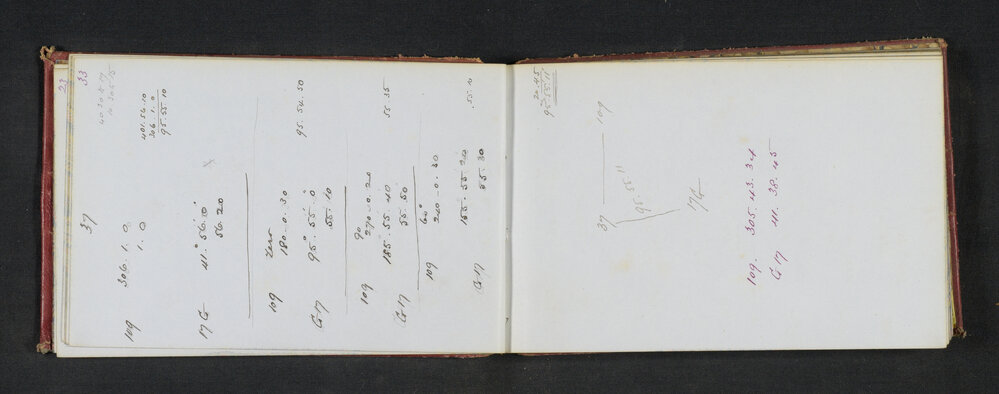 33
23
37
109 306. 1. 0
1. 0
401. 56. 10
306. 1. 0
95. 55. 10
17 G 41°. 56. 10
56. 20
Zero
109 180. 0. 30
G 17 95°. 55. 0 95. 54. 50
55. 10
90
109 270. 0. 20
G 17 185. 55. 40 55 35
55. 50
60°
109 240. 0. 30
G 17 155. 55. 20
55. 30
20 45
95. 55. 11
37 109
95. 55. 11
17 G
109. 305. 43. 34
G 17 41. 38. 45